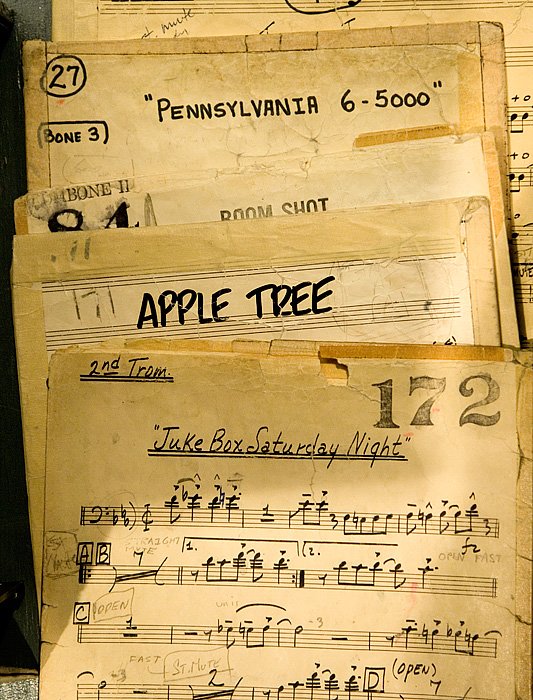 St. mute
27
"PENNSYLVANIA 6-5000"
BONE 3
TROMBONE II
84
BOOM SHOT
171
APPLE TREE
2nd Trom.
172
"Juke Box Saturday Night"
1
STRAIGHT
MUTE
A B
7
1.
2.
OPEN FAST
C
OPEN
1
unis
3
FAST
St. MUTE
(OPEN)
3
2
D
7